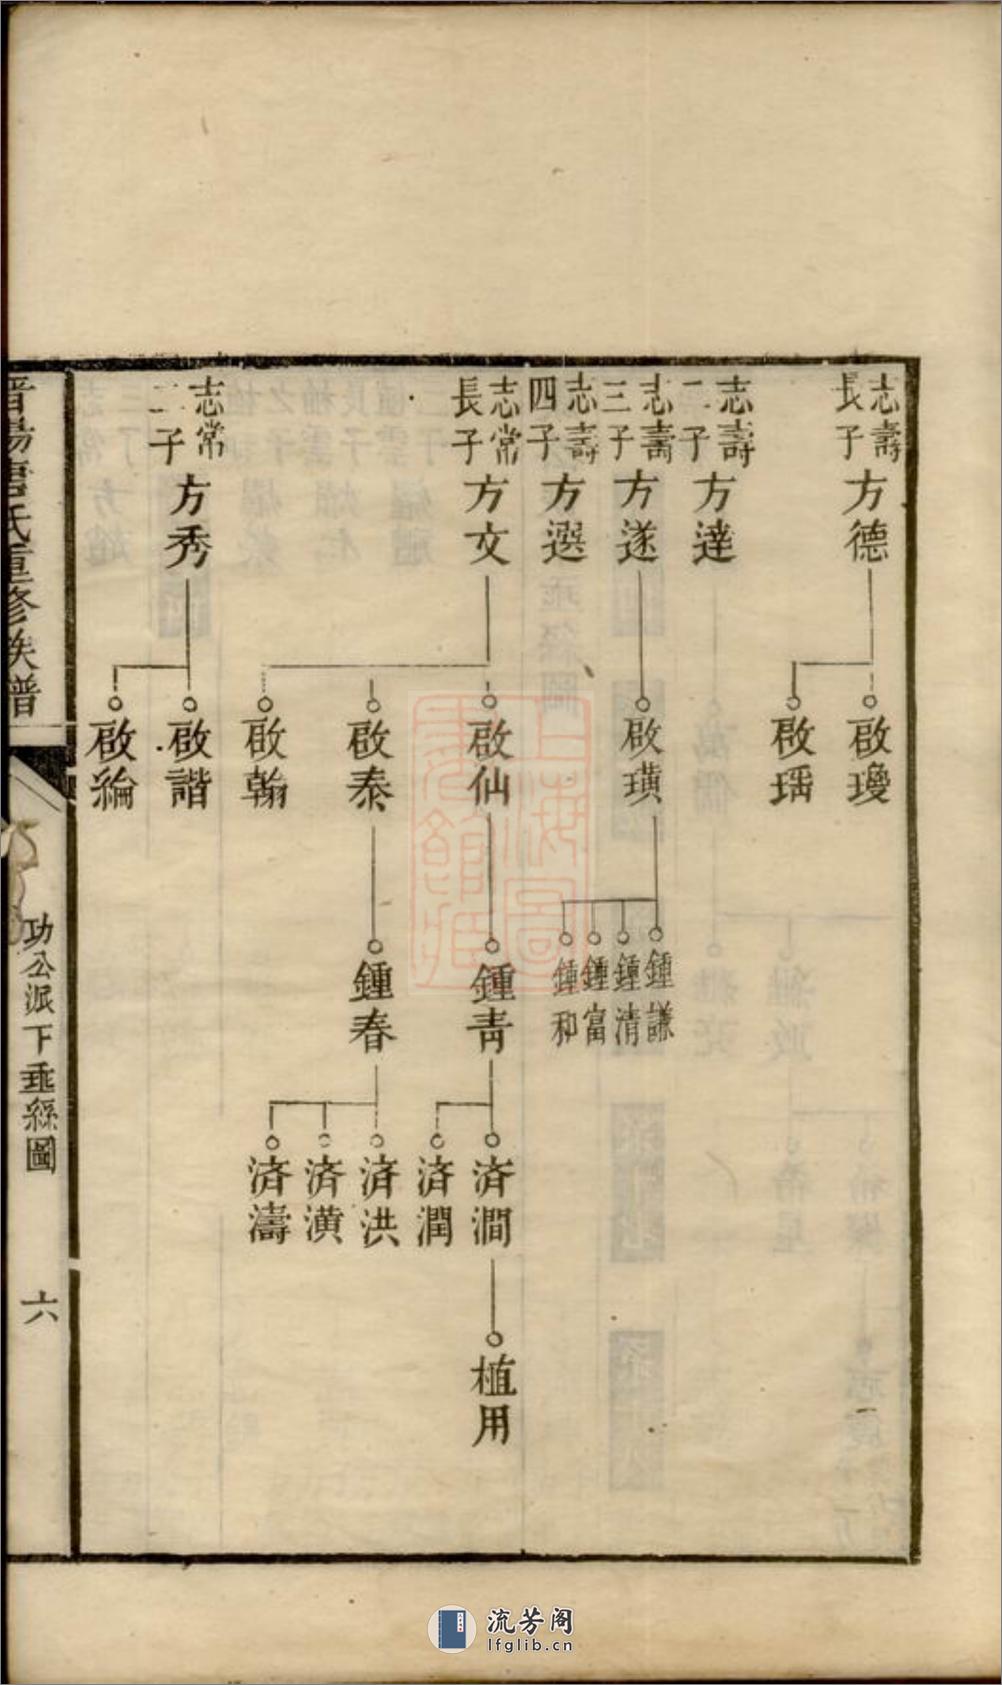 志壽
長子
方德
啟瓊
啟瑀
志壽
二子
方達
志壽
三子
方遂
啟璜
鍾謙
鍾清
鍾富
鍾和
志壽
四子
方選
志常
長子
方文
啟仙
鍾青
済澗
植用
済潤
啟泰
鍾春
済洪
済潢
済濤
啟翰
志常
二子
方秀
啟諧
啟綸
晋陽唐氏重修族譜
功公派下垂絲圖
六
上海圖書館藏
流芳阁
lfglib.cn